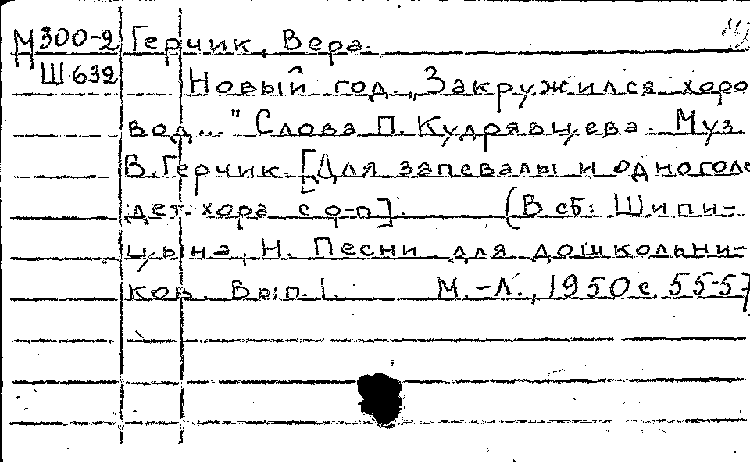 М300-2 Герчик, Вера.
Ш632 Новый год. „Закружился хоро
вод..." Слова П. Кудрявцева. Муз.
В. Герчик [Для запевалы и одноголос
дет. хора с ф-п]. (В сб: Шипи-
цына, Н. Песни для дошкольни-
ков. Вып. 1. М.-Л., 1950 с. 55-57